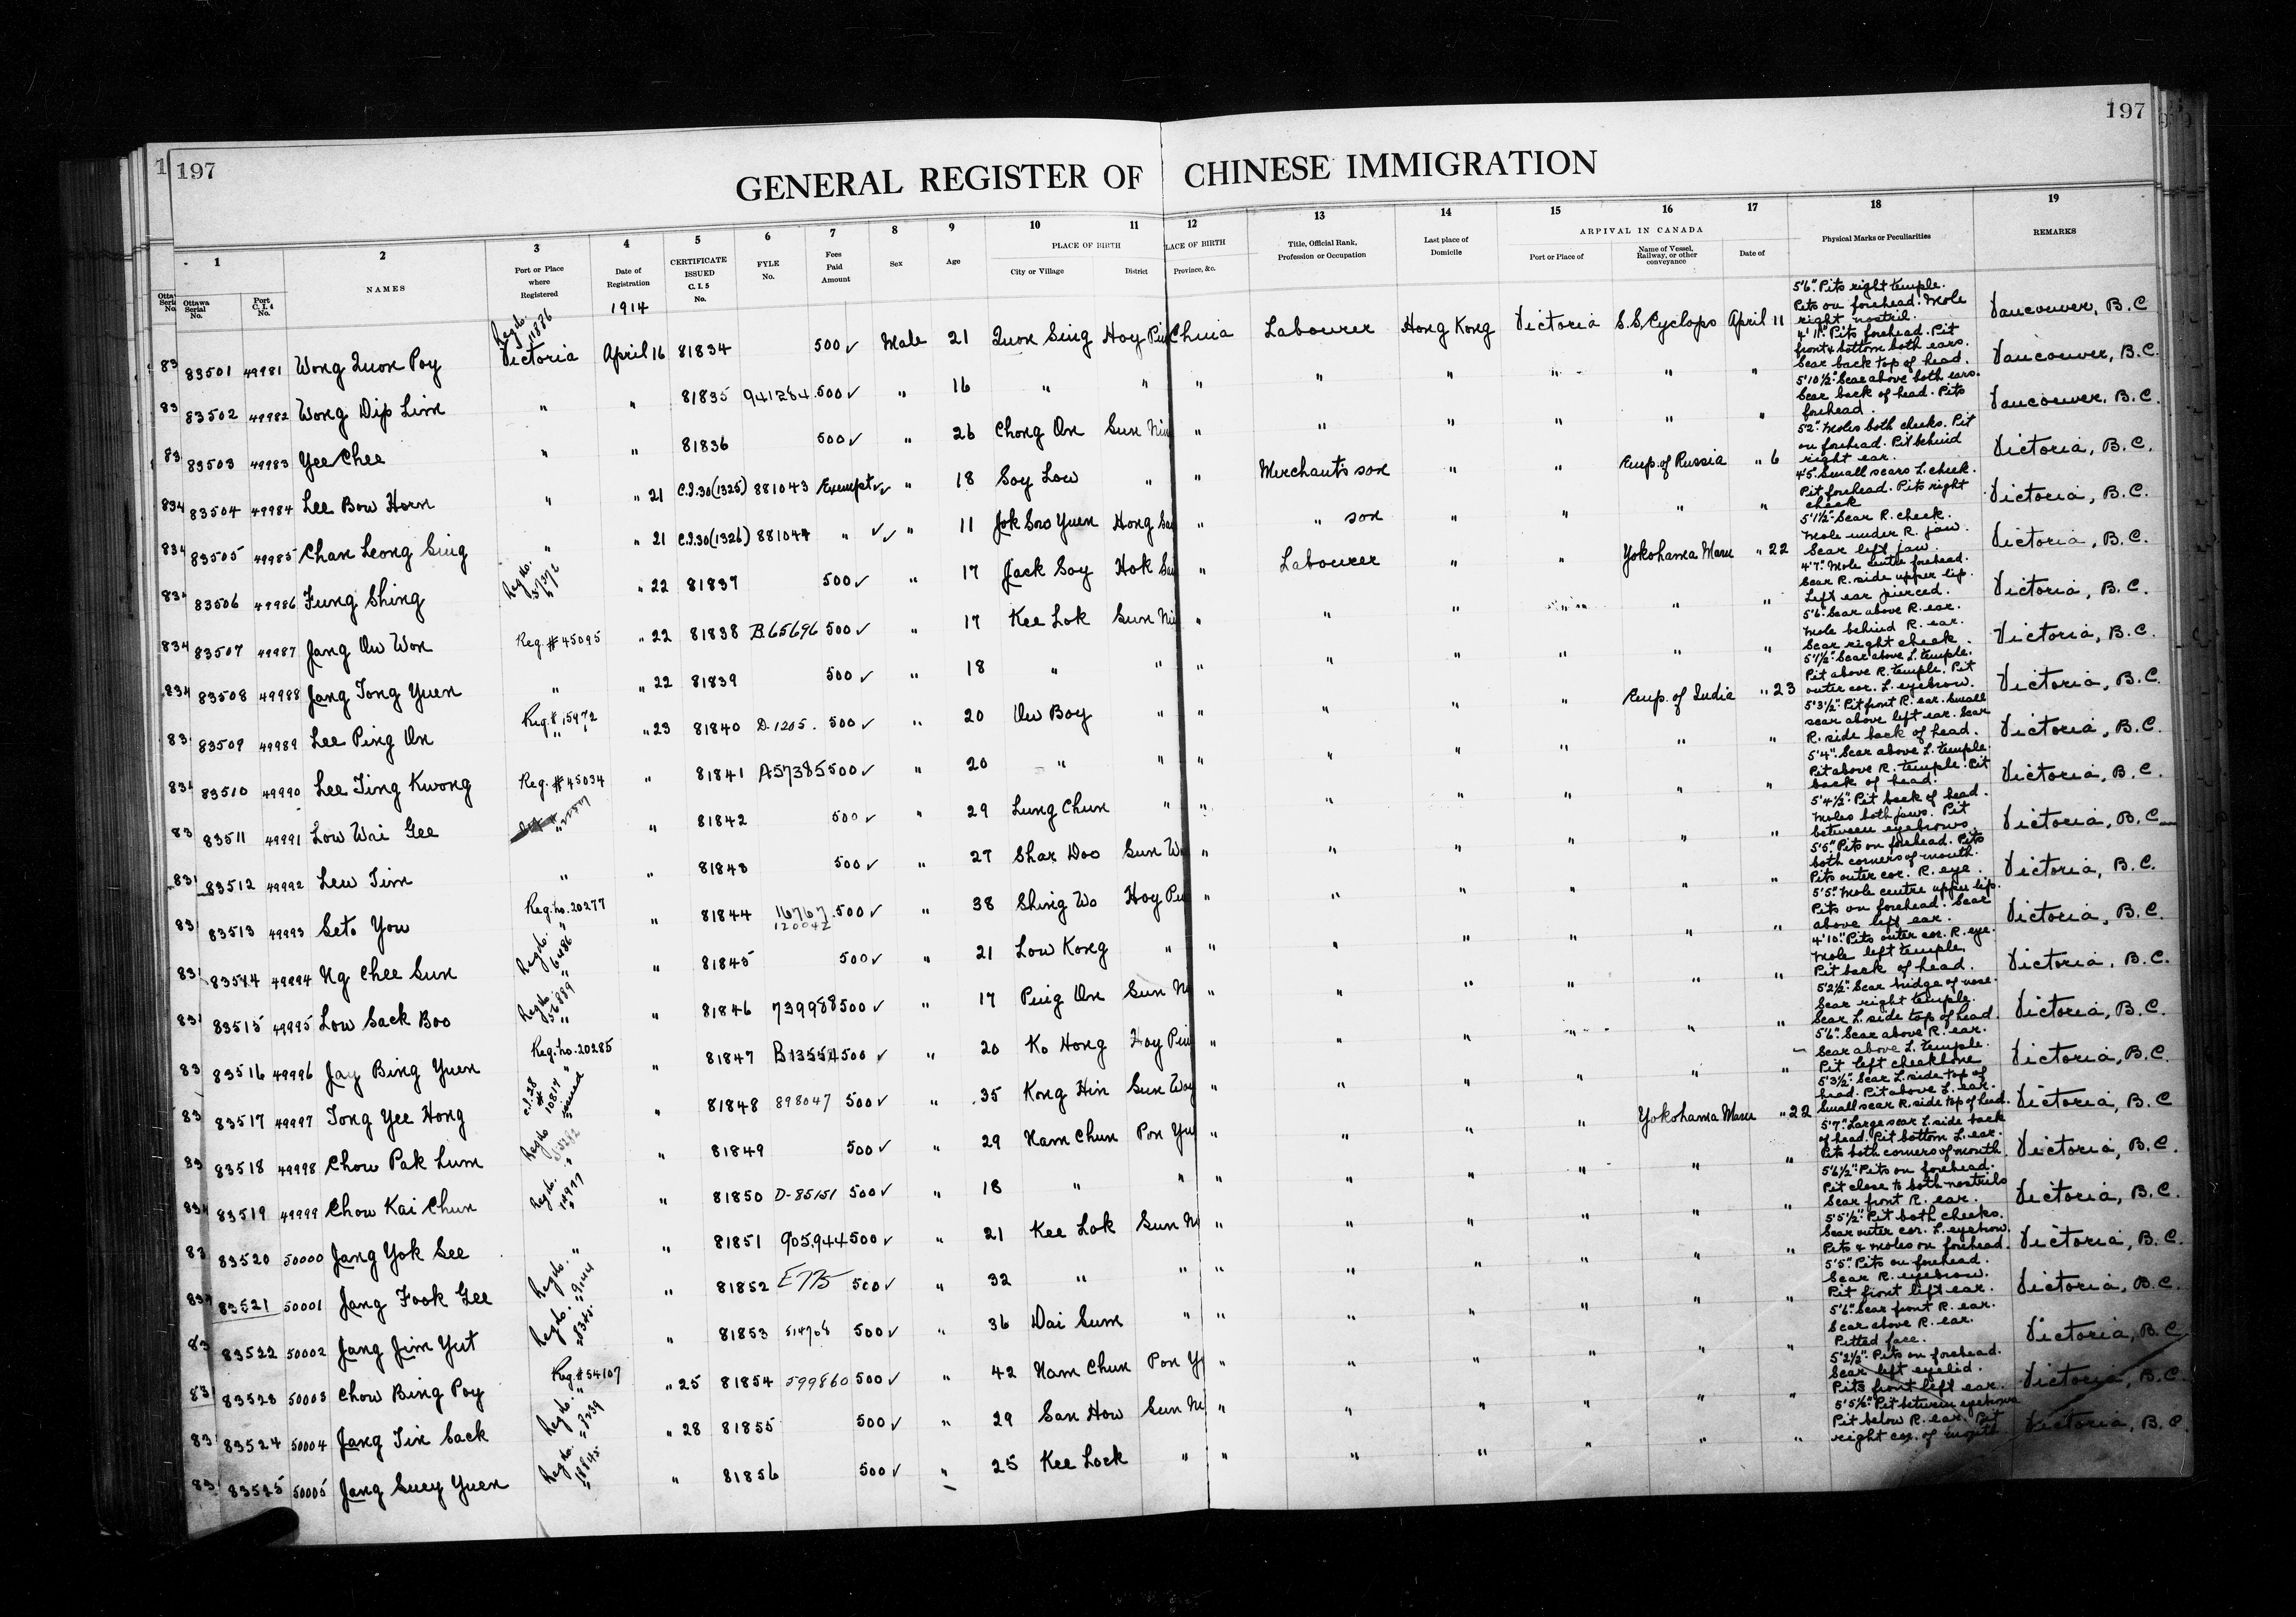 197
197
GENERAL REGISTER OF CHINESE IMMIGRATION
1 2 3 4 5 6 7 8 9 10 11 12 13 14 15 16 17 18 19
PLACE OF BIRTH LACE OF BIRTH ARRIVAL IN CANADA
Ottawa Serial No. Port C.I.4 No. NAMES Port or Place where Registered Date of Registration CERTIFICATE ISSUED C.I.5 No. FYLE No. Fees Paid Amount Sex Age City or Village District Province, &c. Title, Official Rank, Profession or Occupation Last place of Domicile Port or Place of Name of Vessel, Railway, or other conveyance Date of Physical Marks or Peculiarities REMARKS
1914
83501 49981 Wong Quon Poy Reg No. 11886 Victoria April 16 81834 500 ✓ Male 21 Quon Sing Hoy Pin China Labourer Hong Kong Victoria S.S. Cyclops April 11 5'6". Pits right temple. Pits on forehead. Mole right nostril. Vancouver, B.C
83502 49982 Wong Dip Lim " " 81835 941284 500 ✓ " 16 " " " " " " " " 4'11". Pits forehead. Pit front & bottom both ears. Scar back top of head. Vancouver, B.C.
83503 49983 Yee Chee " " 81836 500 ✓ " 26 Chong On Sun Nin " " " " " " 5'10½". Scar above both ears. Scar back of head. Pits forehead. Vancouver, B.C.
83504 49984 Lee Bow Horn " " 21 C.I.30 (1325) 881043 Exempt ✓✓ " 18 Soy Low " " Merchant's son " " Emp. of Russia " 6 5'2". Moles both cheeks. Pit on forehead. Pit behind right ear. Victoria, B.C.
83505 49985 Chan Leong Sing " " 21 C.I.30 (1326) 881044 " ✓✓ " 11 Jok Soo Yuen Hong San " " son " " " " 4'5". Small scars L. cheek. Pit forehead. Pits right cheek Victoria, B.C.
83506 49986 Fung Shing Reg No. 51372 " " 22 81837 500 ✓ " 17 Jack Soy Hok San " Labourer " " Yokohama Maru " 22 5'1½". Scar R. cheek. Mole under R. jaw. Scar left jaw. Victoria, B.C.
83507 49987 Jang Ow Won Reg. # 45095 " 22 81838 B.65696 500 ✓ " 17 Kee Lok Sun Nin " " " " " 4'7". Mole centre forehead. Scar R. side upper lip. Left ear pierced. Victoria, B.C.
83508 49988 Jang Tong Yuen " " 22 81839 500 ✓ " 18 " " " " " " " " 5'6". Scar above R. ear. Mole behind R. ear. Scar right cheek. Victoria, B.C.
83509 49989 Lee Ping On Reg. # 15972 " " 23 81840 D.1205. 500 ✓ " 20 Ow Boy " " " " " Emp. of India " 23 5'1½". Scar above L. temple. Pit above R. temple. Pit outer cor. L. eyebrow. Victoria, B.C.
83510 49990 Lee Ting Kwong Reg. # 45034 " 81841 A57385 500 ✓ " 20 " " " " " " " " 5'3½". Pit front R. ear. Small scar above left ear. Scar R. side back of head. Victoria, B.C.
83511 49991 Low Wai Gee " " 81842 500 ✓ " 29 Lung Chun " " " " " " " 5'4". Scar above L. temple. Pit above R. temple. Pit back of head. Victoria, B.C.
83512 49992 Lew Tim " " 81843 500 ✓ " 27 Shar Doo Sun Wo " " " " " " 5'4½". Pit back of head. Moles both jaws. Pit between eyebrows. Victoria, B.C.
83513 49993 Seto You Reg. No. 20277 " " 81844 16767 120042 500 ✓ " 38 Shing Wo Hoy Pin " " " " " " 5'5". Pits on forehead. Pits both corners of mouth. Pits outer cor. R. eye. Victoria, B.C.
83514 49994 Ng Chee Sun Reg No. 6486 " " 81845 500 ✓ " 21 Low Kong " " " " " " " 5'5". Mole centre upper lip. Pits on forehead. Scar above left ear. Victoria, B.C.
83515 49995 Low Sack Boo Reg No. 56889 " " 81846 739988 500 ✓ " 17 Ping On Sun N " " " " " " 4'10". Pits outer cor. R. eye. Mole left temple. Pit back of head. Victoria, B.C.
83516 49996 Jay Bing Yuen Reg. No. 20285 " 81847 B13554 500 ✓ " 20 Ko Hong Hoy Pin " " " " " " 5'2½". Scar bridge of nose. Scar right temple. Scar L. side top of head. Victoria, B.C.
83517 49997 Tong Yee Hong C.I.28 # 10817 issued " 81848 898047 500 ✓ " 35 Kong Hin Sun Woy " " " " " " 5'6". Scar above R. ear. Scar above L. temple. Pit left cheekbone Victoria, B.C.
83518 49998 Chow Pak Lum Reg No " " 81849 500 ✓ " 29 Nam Chun Pon Yu " " " " Yokohama Maru " 22 5'3½". Scar L. side top of head. Pit above L. ear. Small scar R. side top of head. Victoria, B.C
83519 49999 Chow Kai Chun Reg No. " " 81850 D-85151 500 ✓ " 18 " " " " " " " " 5'7". Large scar L. side back of head. Pit bottom L. ear. Pits both corners of mouth. Victoria, B.C.
83520 50000 Jang Yok See " " 81851 905,944 500 ✓ " 21 Kee Lok Sun N " " " " " " 5'6½". Pits on forehead. Pit close to both nostrils Scar front R. ear. Victoria, B.C.
83521 50001 Jang Fook Gee Reg No. 9144 " " 81852 E775 500 ✓ " 32 " " " " " " " " 5'5½". Pit both cheeks. Scar outer cor. L. eyebrow. Pits & moles on forehead. Victoria, B.C.
83522 50002 Jang Jim Yut Reg No. 8345. " " 81853 514708 500 ✓ " 36 Dai Sum " " " " " " " 5'5". Pits on forehead. Scar R. eyebrow. Pit front left ear. Victoria, B.C.
83523 50003 Chow Bing Poy Reg. # 54107 " " 25 81854 599860 500 ✓ " 42 Nam Chun Pon Y " " " " " " 5'6". Scar front R. ear. Scar above R. ear. Pitted face. Victoria, B.C.
83524 50004 Jang Tin Sack Reg No. 8239 " " 28 81855 500 ✓ " 29 San How Sun N " " " " " " 5'2½". Pits on forehead. Scar left eyelid. Pits front left ear. Victoria, B.C.
83525 50005 Jang Suey Yuen Reg No. 18845. " " 81856 500 ✓ " 25 Kee Lock " " " " " " " 5'5½". Pit between eyebrows Pit below R. ear. Pit right cor. of mouth. Victoria, B.C.